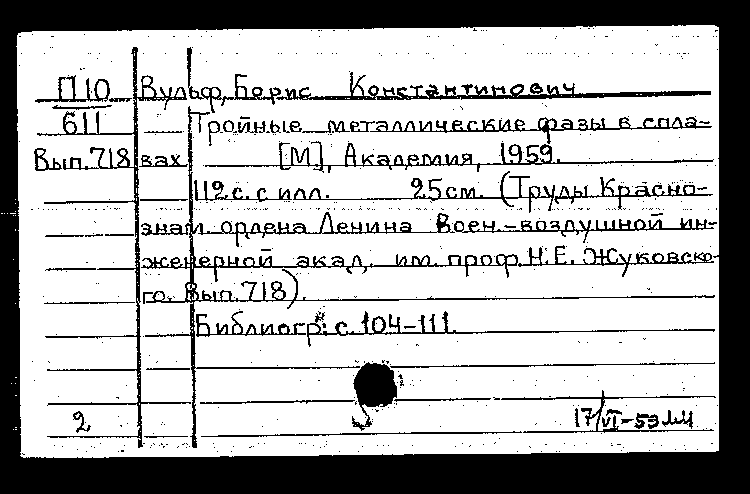 П10 Вульф, Борис Константинович
611 Тройные металлические фазы в спла-
Вып.718 вах [М], Академия, 1959.
112 с. с илл. 25см. (Труды Красно-
знам. ордена Ленина Воен.-воздушной ин-
женерной акад. им. проф. Н.Е. Жуковско-
го. Вып.718).
Библиогр: с. 104-111.
2 17/VI-59